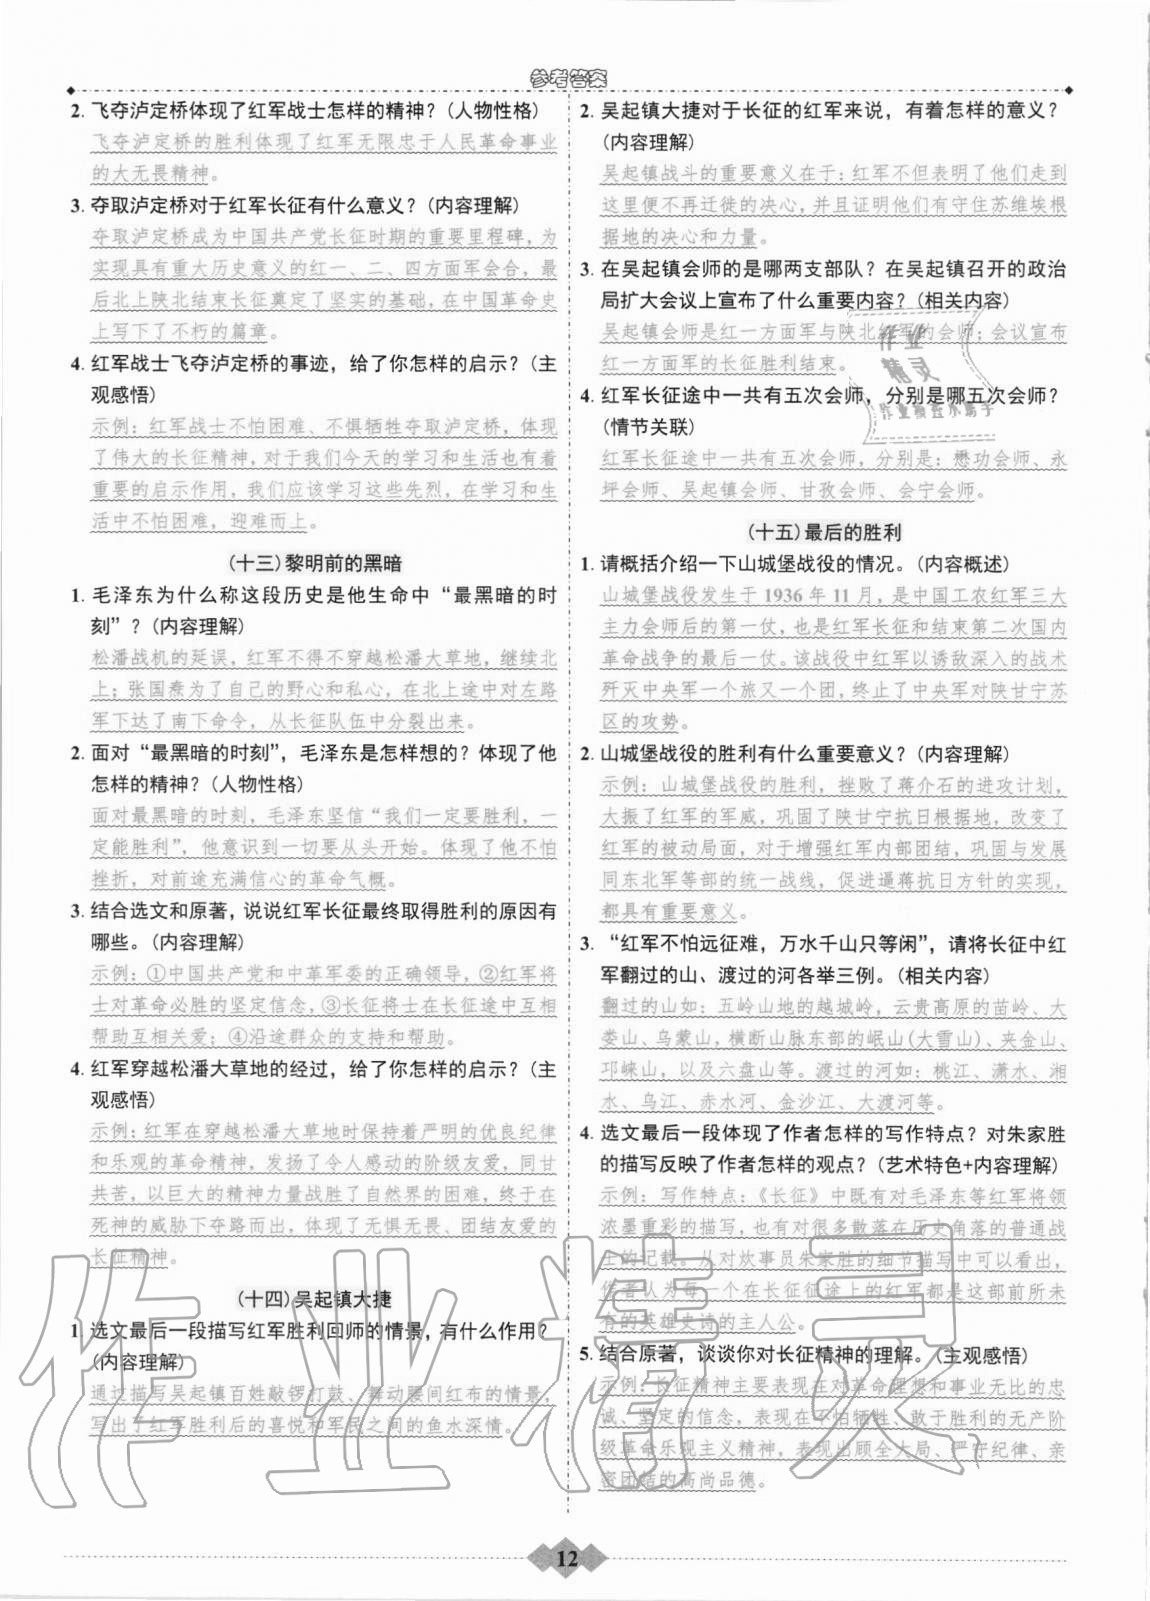 参考答案
2. 飞夺泸定桥体现了红军战士怎样的精神？(人物性格)
飞夺泸定桥的胜利体现了红军无限忠于人民革命事业
的大无畏精神。
3. 夺取泸定桥对于红军长征有什么意义？(内容理解)
夺取泸定桥成为中国共产党长征时期的重要里程碑，为
实现具有重大历史意义的红一、二、四方面军会合，最
后北上陕北结束长征奠定了坚实的基础，在中国革命史
上写下了不朽的篇章。
4. 红军战士飞夺泸定桥的事迹，给了你怎样的启示？(主
观感悟)
示例：红军战士不怕困难、不惧牺牲夺取泸定桥，体现
了伟大的长征精神，对于我们今天的学习和生活也有着
重要的启示作用，我们应该学习这些先烈，在学习和生
活中不怕困难，迎难而上。
(十三)黎明前的黑暗
1. 毛泽东为什么称这段历史是他生命中“最黑暗的时
刻”？(内容理解)
松潘战机的延误，红军不得不穿越松潘大草地，继续北
上；张国焘为了自己的野心和私心，在北上途中对左路
军下达了南下命令，从长征队伍中分裂出来。
2. 面对“最黑暗的时刻”，毛泽东是怎样想的？体现了他
怎样的精神？(人物性格)
面对最黑暗的时刻，毛泽东坚信“我们一定要胜利，一
定能胜利”，他意识到一切要从头开始。体现了他不怕
挫折，对前途充满信心的革命气概。
3. 结合选文和原著，说说红军长征最终取得胜利的原因有
哪些。(内容理解)
示例：①中国共产党和中革军委的正确领导，②红军将
士对革命必胜的坚定信念，③长征将士在长征途中互相
帮助互相关爱；④沿途群众的支持和帮助。
4. 红军穿越松潘大草地的经过，给了你怎样的启示？(主
观感悟)
示例：红军在穿越松潘大草地时保持着严明的优良纪律
和乐观的革命精神，发扬了令人感动的阶级友爱，同甘
共苦，以巨大的精神力量战胜了自然界的困难，终于在
死神的威胁下夺路而出，体现了无惧无畏、团结友爱的
长征精神。
(十四)吴起镇大捷
1. 选文最后一段描写红军胜利回师的情景，有什么作用？
(内容理解)
通过描写吴起镇百姓敲锣打鼓、舞动腰间红布的情景，
写出了红军胜利后的喜悦和军民之间的鱼水深情。
2. 吴起镇大捷对于长征的红军来说，有着怎样的意义？
(内容理解)
吴起镇战斗的重要意义在于：红军不但表明了他们走到
这里便不再迁徙的决心，并且证明他们有守住苏维埃根
据地的决心和力量。
3. 在吴起镇会师的是哪两支部队？在吴起镇召开的政治
局扩大会议上宣布了什么重要内容？(相关内容)
吴起镇会师是红一方面军与陕北红军的会师；会议宣布
红一方面军的长征胜利结束。
4. 红军长征途中一共有五次会师，分别是哪五次会师？
(情节关联)
红军长征途中一共有五次会师，分别是：懋功会师、永
坪会师、吴起镇会师、甘孜会师、会宁会师。
(十五)最后的胜利
1. 请概括介绍一下山城堡战役的情况。(内容概述)
山城堡战役发生于1936年11月，是中国工农红军三大
主力会师后的第一仗，也是红军长征和结束第二次国内
革命战争的最后一仗。该战役中红军以诱敌深入的战术
歼灭中央军一个旅又一个团，终止了中央军对陕甘宁苏
区的攻势。
2. 山城堡战役的胜利有什么重要意义？(内容理解)
示例：山城堡战役的胜利，挫败了蒋介石的进攻计划，
大振了红军的军威，巩固了陕甘宁抗日根据地，改变了
红军的被动局面，对于增强红军内部团结，巩固与发展
同东北军等部的统一战线，促进逼蒋抗日方针的实现，
都具有重要意义。
3. “红军不怕远征难，万水千山只等闲”，请将长征中红
军翻过的山、渡过的河各举三例。(相关内容)
翻过的山如：五岭山地的越城岭，云贵高原的苗岭、大
娄山、乌蒙山，横断山脉东部的岷山(大雪山)、夹金山、
邛崃山，以及六盘山等。渡过的河如：桃江、潇水、湘
水、乌江、赤水河、金沙江、大渡河等。
4. 选文最后一段体现了作者怎样的写作特点？对朱家胜
的描写反映了作者怎样的观点？(艺术特色+内容理解)
示例：写作特点：《长征》中既有对毛泽东等红军将领
浓墨重彩的描写，也有对很多散落在历史角落的普通战
士的记载。从对炊事员朱家胜的细节描写中可以看出，
作者认为每一个在长征征途上的红军都是这部前所未
有的英雄史诗的主人公。
5. 结合原著，谈谈你对长征精神的理解。(主观感悟)
示例：长征精神主要表现在对革命理想和事业无比的忠
诚、坚定的信念，表现在不怕牺牲、敢于胜利的无产阶
级革命乐观主义精神，表现出顾全大局、严守纪律、亲
密团结的高尚品德。
作业
精灵
作业精灵
12